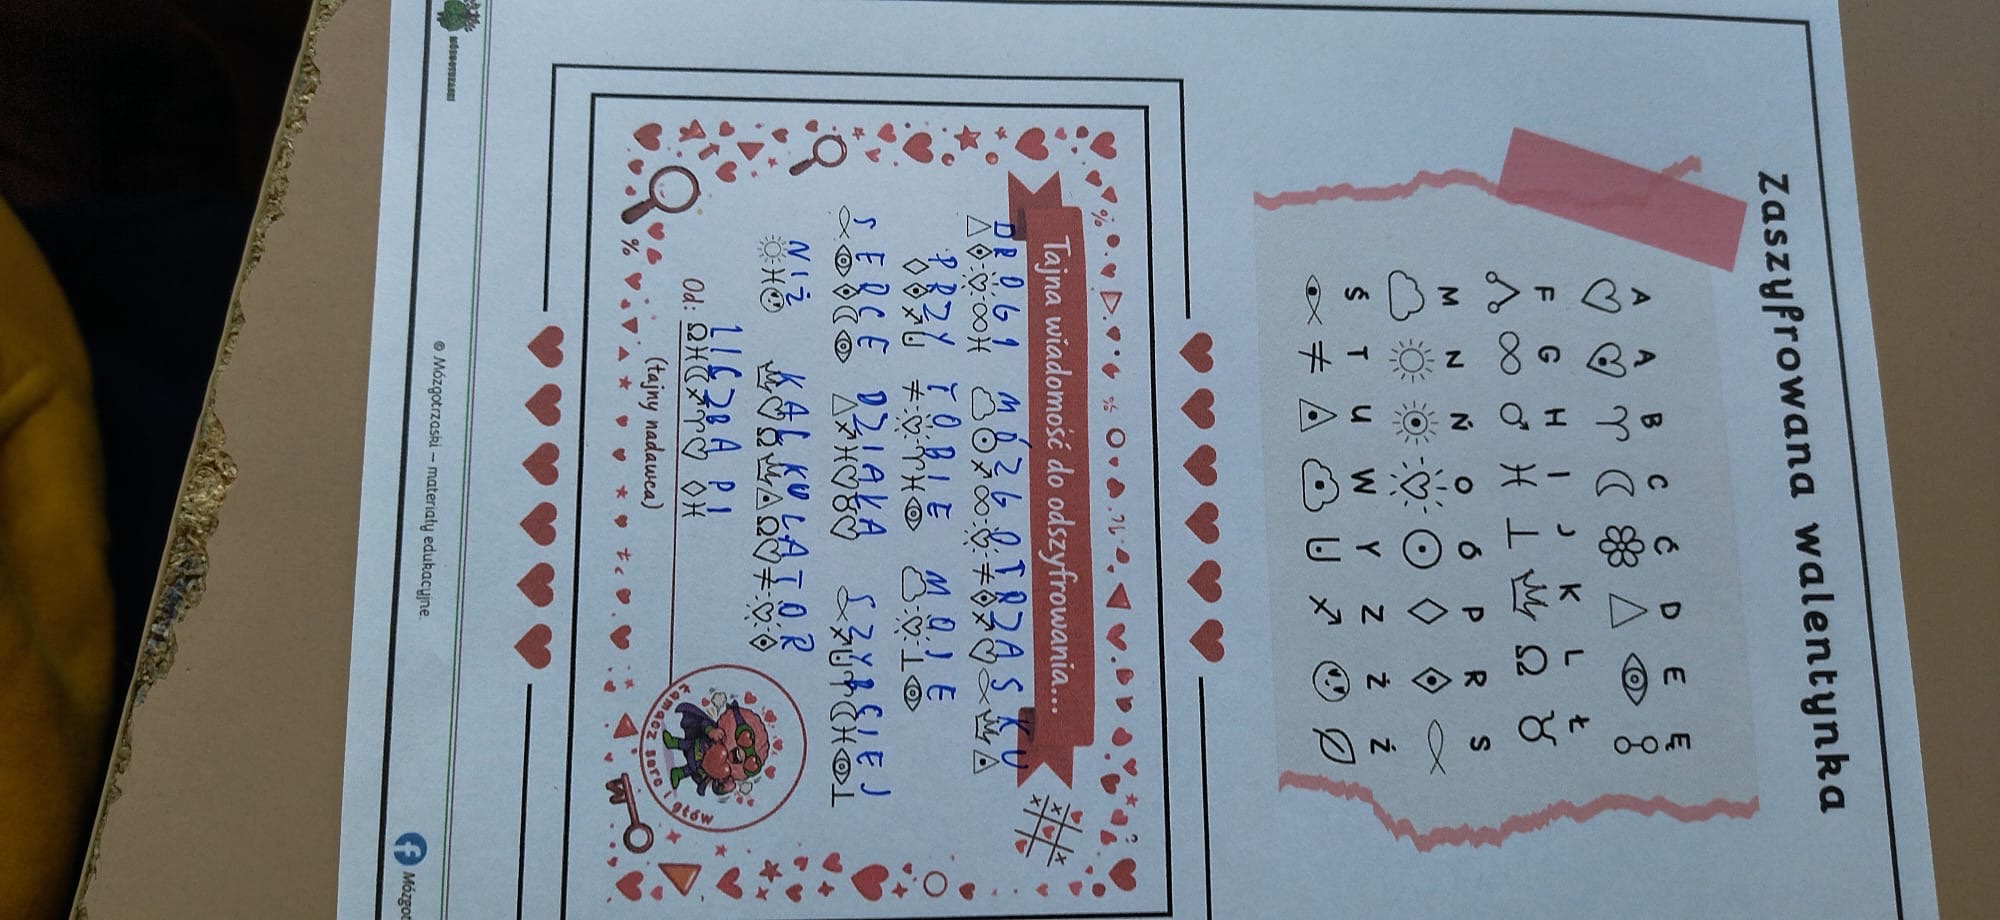 Zaszyfrowana walentynka
A Ą B C Ć D E Ę
F G H I J K L Ł
M N Ń O Ó P R S
Ś T U W Y Z Ż Ź
Tajna wiadomość do odszyfrowania...
DROGI MÓZGOTRZASKU
PRZY TOBIE MOJE
SERCE DZIAŁA SZYBCIEJ
NIŻ KALKULATOR
LICZBA PI
Od:
(tajny nadawca)
Łamacz serc i głów
MÓZGOTRZASKI
© Mózgotrzaski – materiały edukacyjne.